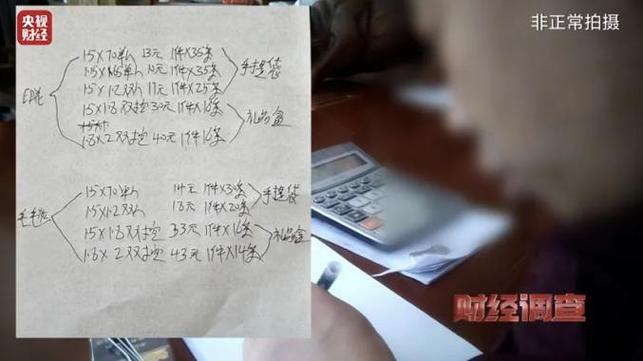 央视
财经
非正常拍摄
15×70单 13元 1件×35条
10元 1件×35条
手提袋
15×1.2双 17元 1件×25条
15×1.8双控 30元 1件×16条
礼品盒
1.8×2双控 40元 1件16条
15×70单 14元 1件×30条
手提袋
15×1.2双 18元 1件×20条
15×1.8双控 33元 1件×16条
礼品盒
1.8×2双控 43元 1件×14条
财经调查